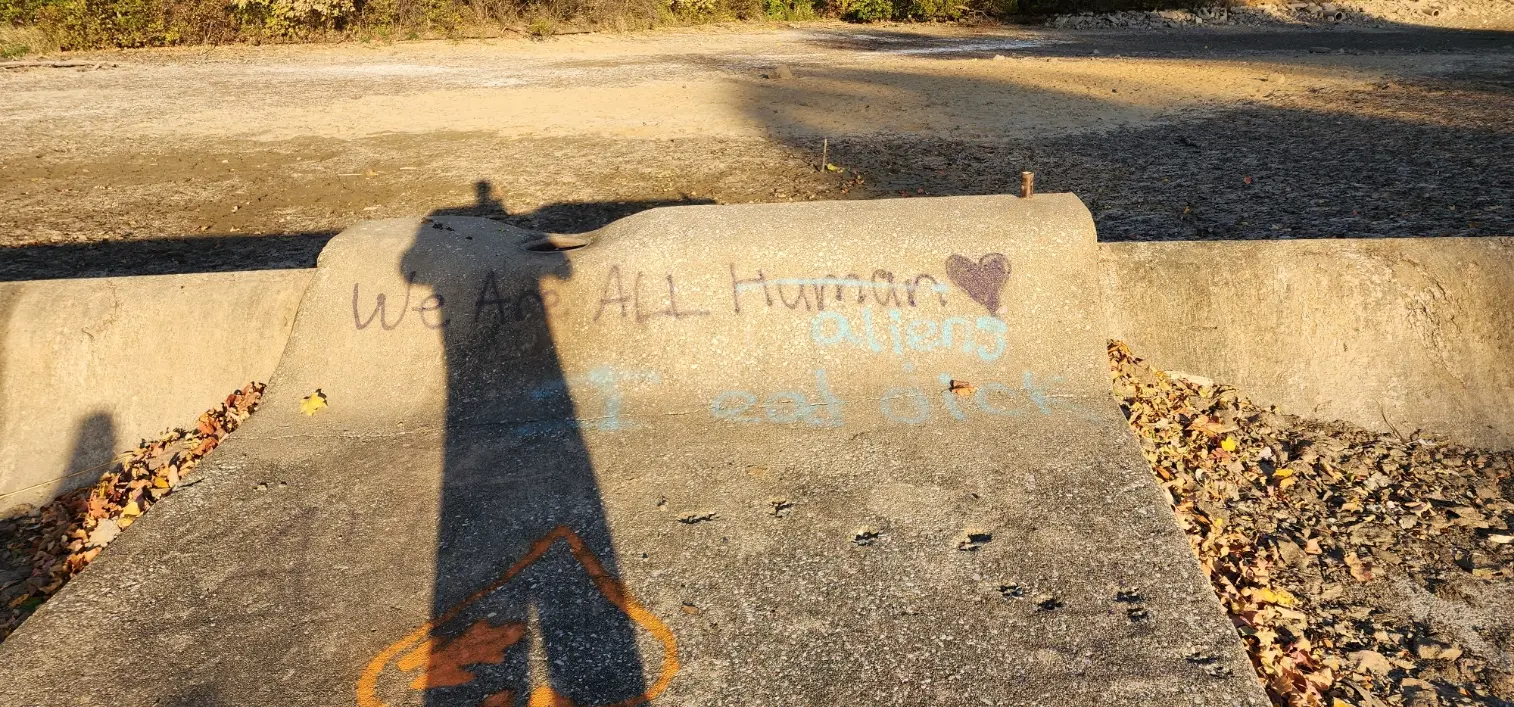 We Are ALL Human
aliens
I eat dick